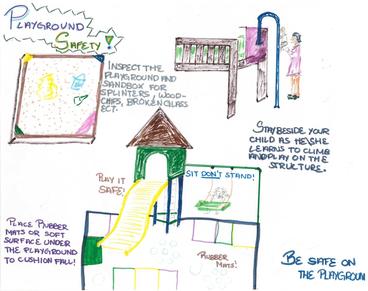 PLAYGROUND
SAFETY!
INSPECT THE
PLAYGROUND AND
SANDBOX FOR
SPLINTERS, WOOD-
CHIPS, BROKEN GLASS
ECT.
STAY BESIDE YOUR
CHILD AS HE\SHE
LEARNS TO CLIMB
AND PLAY ON THE
STRUCTURE.
PLAY IT
SAFE!
SIT DON'T STAND!
PLACE RUBBER
MATS OR SOFT
SURFACE UNDER
THE PLAYGROUND
TO CUSHION FALL!
RUBBER
MATS!
BE SAFE ON
THE PLAYGROUN